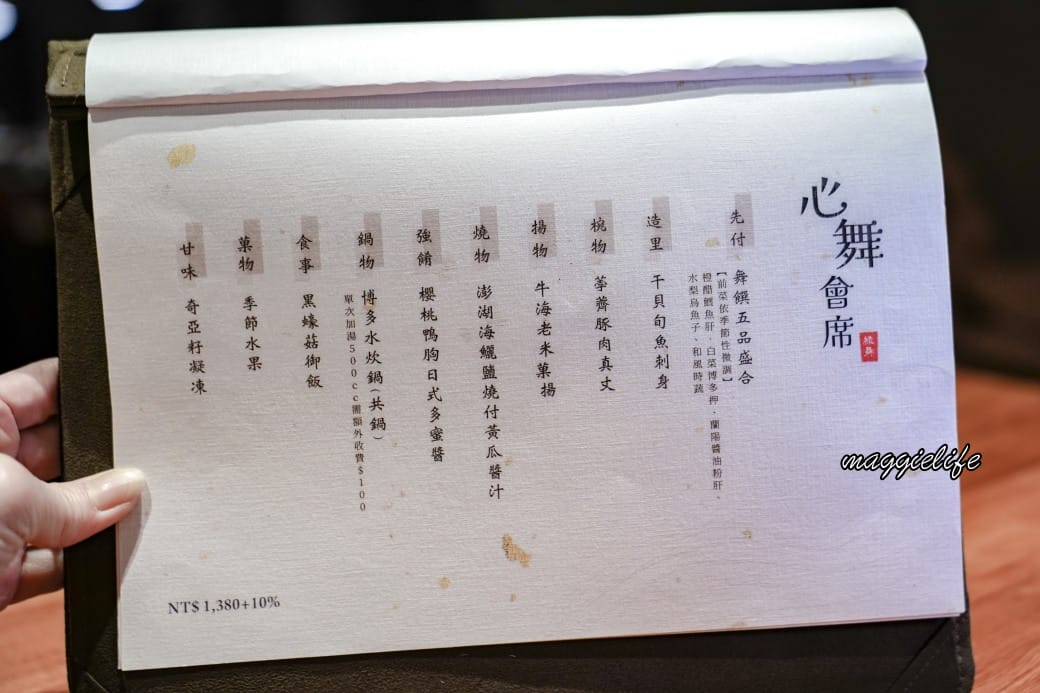 心舞會席
綠舞
先付
舞饌五品盛合
【前菜依季節性微調】
橙醋鱈魚肝．白菜博多押．蘭陽醬油粉肝、
水梨烏魚子、和風時蔬
造里
干貝旬魚刺身
椀物
荸薺豚肉真丈
揚物
牛海老米菓揚
燒物
澎湖海鱺鹽燒付黃瓜醬汁
強餚
櫻桃鴨胸日式多蜜醬
鍋物
博多水炊鍋(共鍋)
單次加湯500cc需額外收費$100
食事
黑蠔菇御飯
菓物
季節水果
甘味
奇亞籽凝凍
NT$ 1,380+10%
maggielife